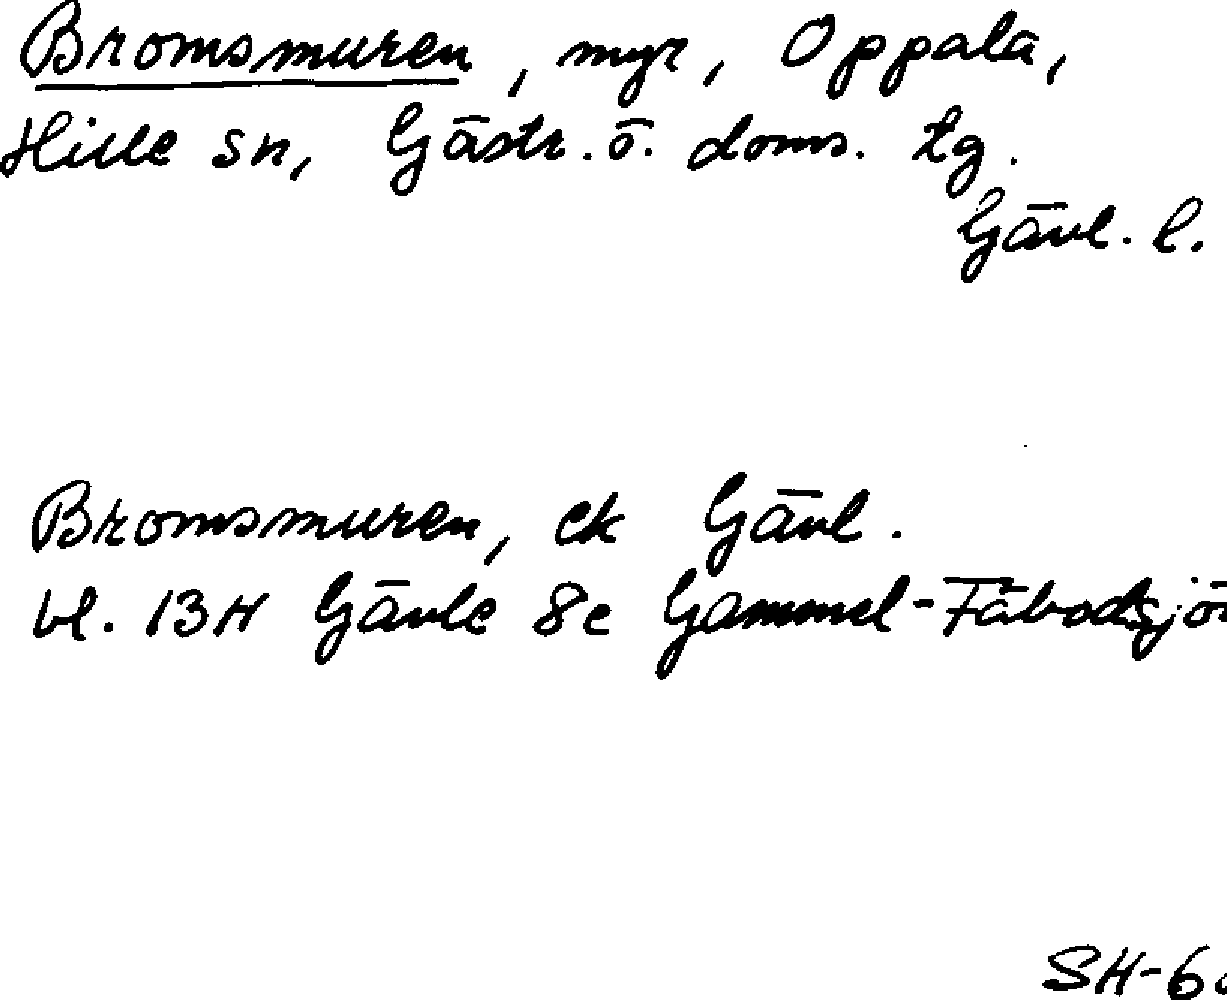 Bromsmuren, myr, Oppala,
Hille sn, Gästr. ö. doms. tg.
Gävl. l.
Bromsmuren, ek Gävl.
bl. 13H Gävle 8e Gammel-Fäbodsjö
SH-6